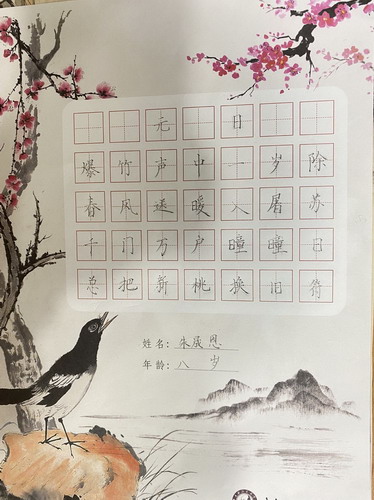 元日
爆竹声中一岁除
春风送暖入屠苏
千门万户曈曈日
总把新桃换旧符
姓名：朱宬恩
年龄：八岁